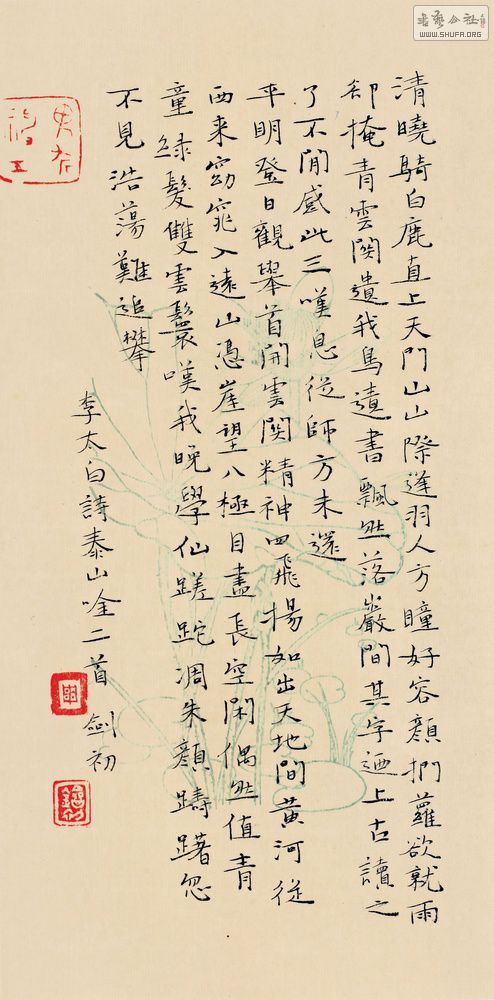 清曉騎白鹿直上天門山山際逢羽人方瞳好容顏捫蘿欲就雨
卻掩青雲關遺我鳥遺書飄然落巖間其字迺上古讀之
了不閒感此三嘆息從師方未還
平明登日觀舉首開雲關精神四飛揚如出天地間黃河從
西來窈窕入遠山憑崖望八極目盡長空閑偶然值青
童綠髮雙雲鬟嘆我晚學仙蹉跎凋朱顏躊躇忽
不見浩蕩難追攀
李太白詩泰山唫二首 劍初
WWW.SHUFA.ORG